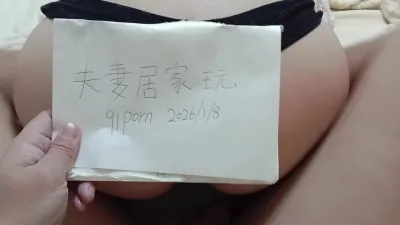 夫妻居家玩
91porn 2026/1/8